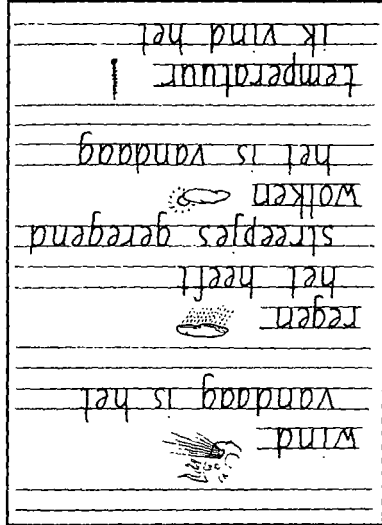 wind
vandaag is het
regen
het heeft
streepjes geregend
wolken
het is vandaag
temperatuur
ik vind het